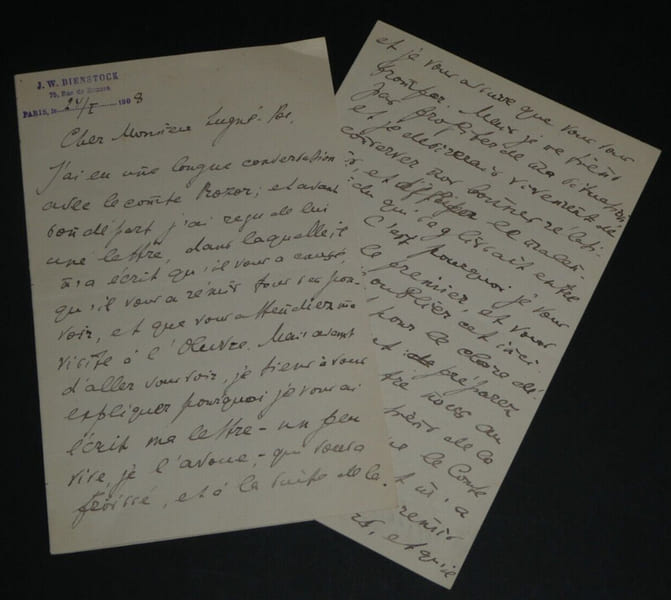 J. W. BIENSTOCK
PARIS, le 24/I 1908
Cher Monsieur Lugné-Poe,
J'ai eu une longue conversation
avec le comte Prozor; et avant
son départ j'ai reçu de lui
une lettre, dans laquelle il
m'a écrit qu'il vous a causé,
qu'il vous a remis tous ses pou-
voirs, et que vous attendiez ma
visite à l'Oeuvre. Mais avant
d'aller vous voir, je tiens à vous
expliquer pourquoi je vous ai
écrit ma lettre – un peu
vive, je l'avoue, – qui vous a
froissé, et à la suite de la-
et je vous assure que vous vous
trompez. Mais je ne tiens
pas profiter de ma situation
et je désirerais vivement
conserver nos bonnes relati-
et
du qui glissait entre
C'est pourquoi je vous
le premier, et vous
oublier cet inci-
pour le
et de préparer
nous au
de la
que le Comte
m'a
remis
et qu'il